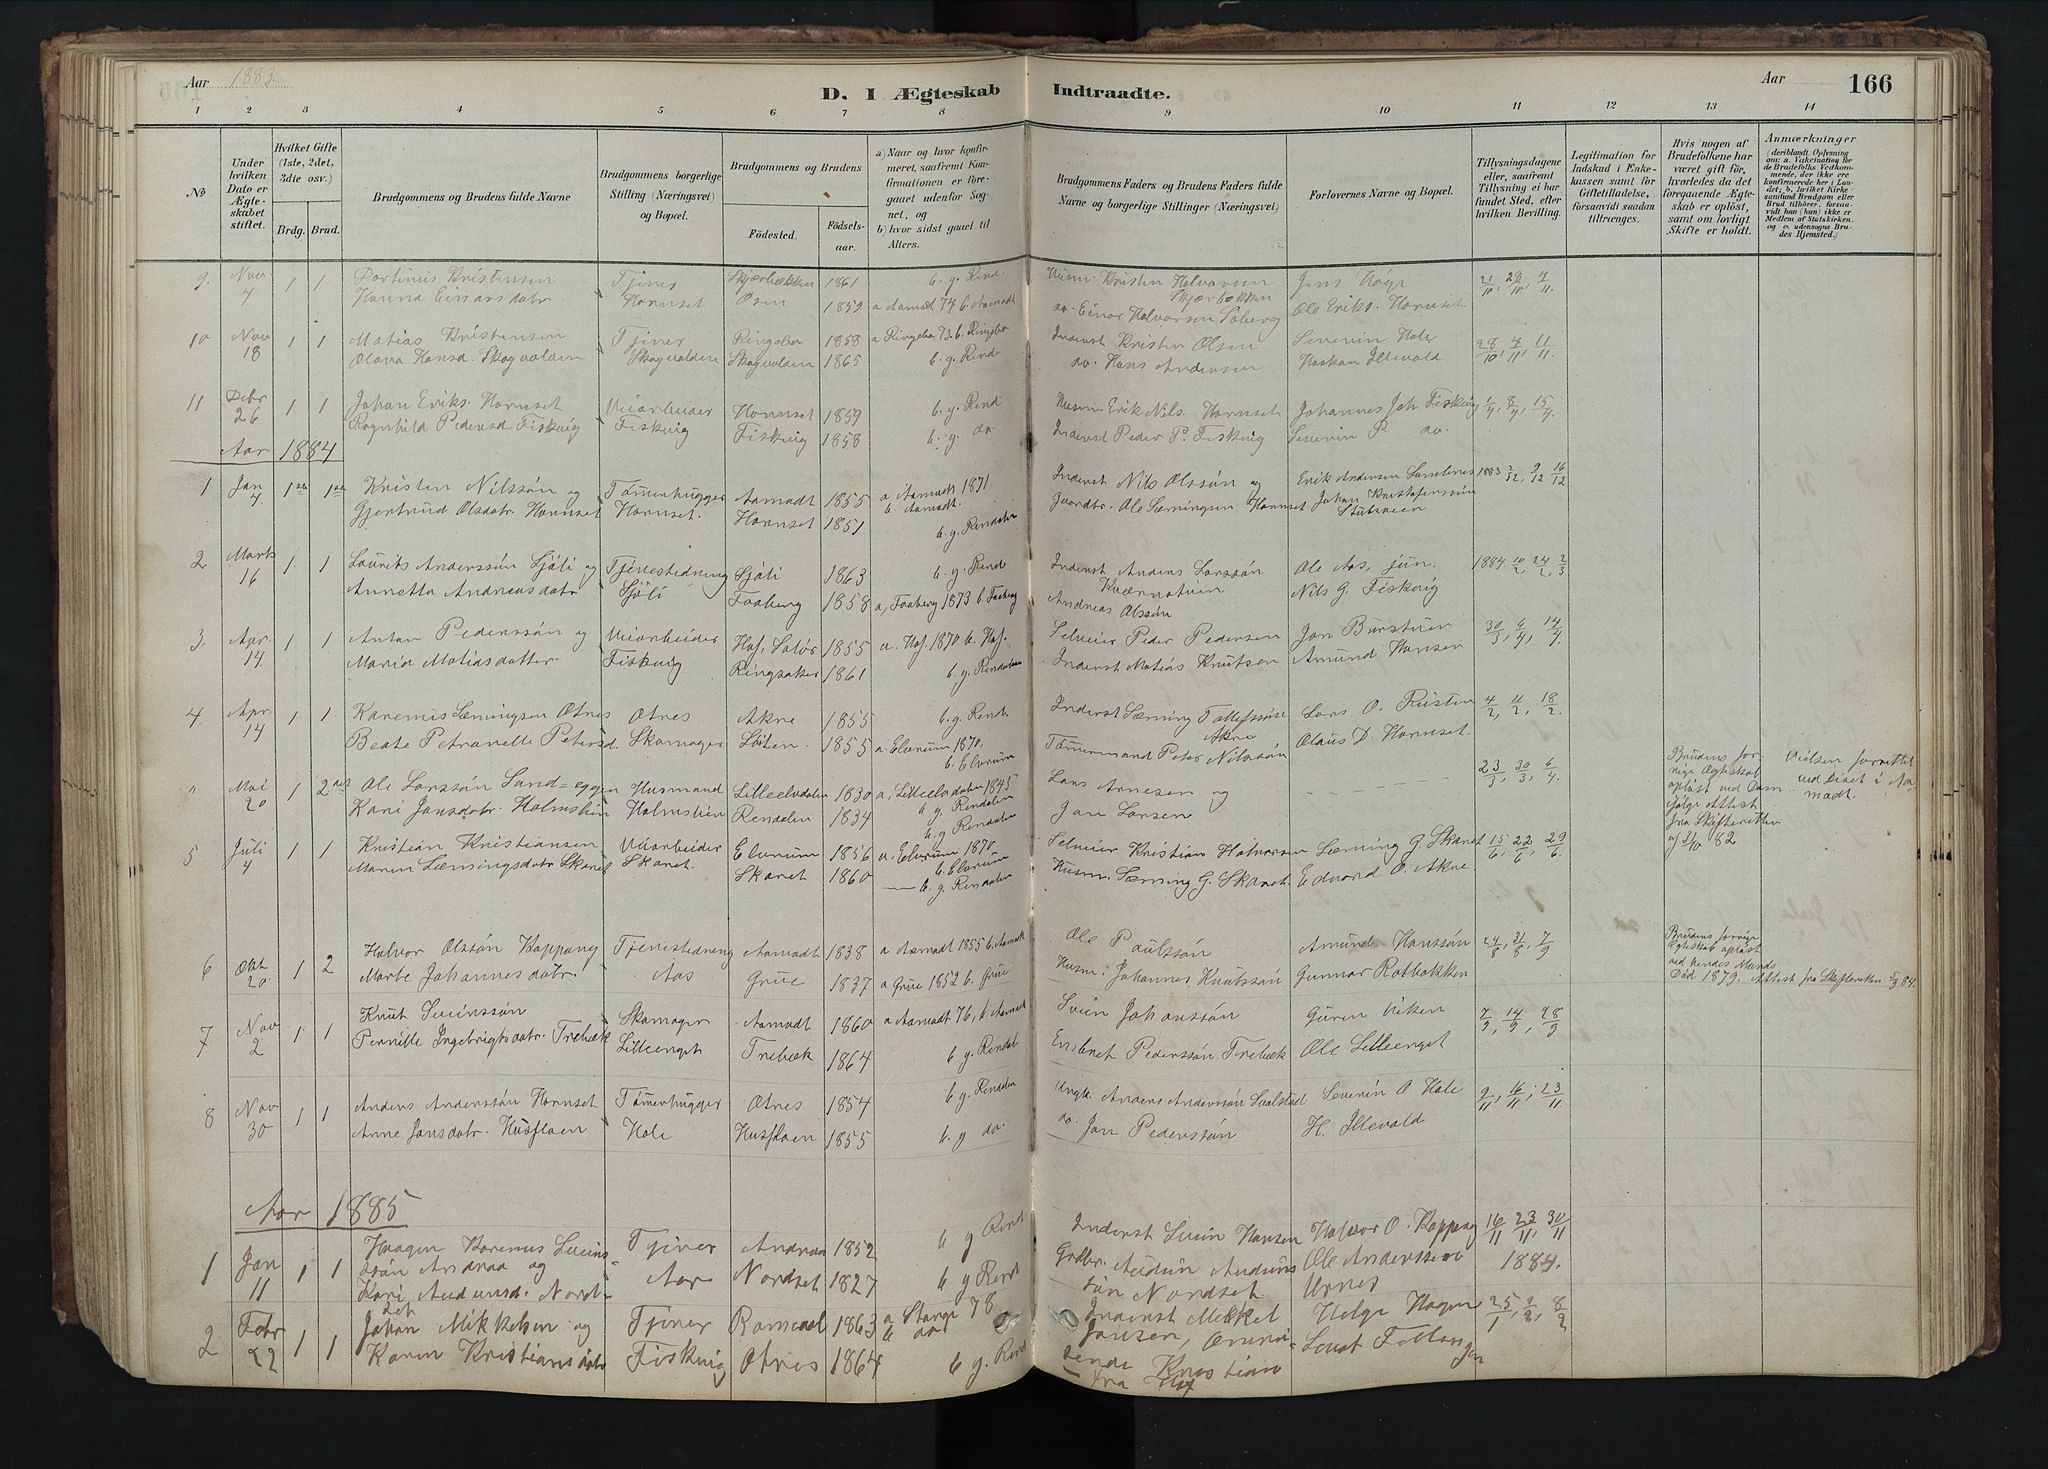 Aar 1883.
D. I Ægteskab Indtraadte.
Aar
166
1 2 3 4 5 6 7 8 9 10 11 12 13 14
No
Under hvilken Dato er Ægteskabet stiftet.
Hvilket Gifte (1ste, 2det, 3die osv.)
Brdg. Brud.
Brudgommens og Brudens fulde Navne
Brudgommens borgerlige Stilling (Næringsvei) og Bopæl.
Brudgommens og Brudens
Fødested.
Fødselsaar.
a) Naar og hvor konfirmeret, saafremt Konfirmationen er foregaaet udenfor Sognet, og
b) hvor sidst gaaet til Alters.
Brudgommens Faders og Brudens Faders fulde Navne og borgerlige Stillinger (Næringsvei)
Forlovernes Navne og Bopæl.
Tillysningsdagene eller, saafremt Tillysning ei har fundet Sted, efter hvilken Bevilling.
Legitimation for Indskud i Enkekassen samt for Giftetilladelse, forsaavidt saadan tiltrænges.
Hvis nogen af Brudefolkene har været gift før, hvorledes da det foregaaende Ægteskab er opløst, samt om lovligt Skifte er holdt.
Anmærkninger
9. Nov 4 1 1 Kristensen Tjener Skjærbækken 1861 b. g. Rend. Husm. Kristen Halvorsen Skjærbekken Jens Høye 21/10, 28/10, 4/11.
Hanna Einarsdatr Hornset Osen 1859 a Aamodt 74 b. Aamodt do. Einar Halvorsen Soberg Ole Eriks. Hornset
10 Nov 18 1 1 Matias Kristensen Tjener Ringebo 1858 a Ringebo 73 b. Ringebo Inderst Kristen Olsen Severin Hole 28/10, 4/11, 11/11.
Olava Hansd. Skogvolden Skogvolden Skogvolden 1865 b. g. Rend. do. Hans Andersen Haakan Illevold
11 Debr 26 1 1 Johan Eriks. Hornset Veiarbeider Hornset 1859 b. g. Rend Husm. Erik Nils. Hornset Johannes Joh. Fiskvig 1/4, 8/4, 15/4.
Ragnhild Pedersd. Fiskvig Fiskvig Fiskvig 1858 b. g. do. Inderst Peder P. Fiskvig Severin P. do.
Aar 1884
1 Jan 4 1ste 1ste Kristen Nilssøn og Tømmerhugger Aamodt 1855 a. Aamodt 1871 b. Aamodt. Inderst Nils Olssøn og Erik Andersen 1883 2/12, 9/12, 16/12
Gjertrud Olsdatr. Hornset Hornset. Hornset 1851 b. g. Rendalen Gaardbr. Ole Sæmingsen Hornset Johan Kristofferssøn
2 Marts 16 1 1 Laurits Anderssøn Sjøli og Tjenestedreng Sjøli 1863 b. g. Rend Inderst Anders Larssøn Ole Aas, jun. 1884. 10/2, 24/2, 2/3
Annetta Andreasdatr Sjøli Faaberg 1858 a, Faaberg 1873 b. Faaberg Andreas Olssøn Nils G. Fiskvig
3. Apr. 14 1 1 Anton Pederssøn og Veiarbeider Hof, Solør 1855 a. Hof. 1870 b. Hof. Selveier Peder Pedersen Jon 30/3, 6/4, 14/4
Maria Matiasdatter Fiskvig Ringsaker 1861 b. g. Rendalen Inderst Matias Knutsen Amund Hansen
4. Apr. 14 1 1 Karenus Sæmingsen Otnes Otnes Akre 1855 b. g. Rend. Inderst Sæming Tollefssøn Akre Lars O. Rusten 4/2, 11/2, 18/2.
Beate Petranelle Petersd. Skomager Løiten. 1855 a. Elvrum 1870. b. Elvrum Tømmermand Peter Nilssøn Olaus D. Hornset.
" Mai 20 1 2det Ole Larssøn Sand=eggen Husmand Lilleelvdalen 1830 a, Lilleelvdalen 1845 b. g. Rendalen Lars Arnesen og 23/3, 30/3, 6/4. Brudens forrige Ægteskab opløst ved Dom ifølge Attest fra Skifteretten af 31/10 82 Vielsen forrettet ved i Aamodt.
Kari Jonsdatr. Holmstien Holmstien Rendalen 1834 b. g Rendalen Jon Larsen
5 Juli 4 1 1 Kristian Kristiansen Veiarbeider Elvrum 1856 a. Elvrum 1870. b. Elvrum Selveier Kristian Halvorsen Sæming G. Skaret 15/6, 22/6, 29/6.
Maren Sæmingsdatr. Skaret Skaret. Skaret 1860 b. g. Rendalen Husm. Sæming G. Skaret Edvard O. Akre
6 Okt 20. 1 2 Halvor Olssøn Koppang Tjenestedreng Aamodt 1838 a Aamodt 1855 b. Aamodt Ole Paulssøn Amund Hanssøn 24/8, 31/8, 7/9 Brudens forrige Ægteskab opløst ved hendes Mands Død 1879. Attest fra Skifteretten 5/9 84.
Marte Johannesdatr. Aas Grue 1837 a Grue 1852 b. Grue Husm. Johannes Knutssøn Gunnar Rotbakken
7 Nov 2 1 1 Knut Sveinssøn Skomager Aamodt 1860 a Aamodt 76, b. Aamodt Svein Johanssøn Guren Viken 7/9, 14/9, 28/9
Pernille Ingebrigtsdatr. Trebæk Lilleenget Trebæk 1864 b g. Rendal Pederssøn Trebæk Ole Lilleenget
8 Nov 30 1 1 Anders Anderssøn Hornset Tømmerhugger Otnes 1854 b g. Rendalen Ungk. Anders Anderssøn Severin O Hole 9/11, 16/11, 23/11.
Anne Jonsdatr. Husfloen Hole Husfloen 1855 b. g do. do. Jon Pederssøn H. Illevold
Aar 1885
1 Jan 11 1 1 Haagen Karenus Sveinssøn Andraa og Tjener Andraa 1852 b g Rend Inderst Svein Hansen Halvor O. Koppang 16/11, 23/11, 30/11 1884.
Kari Audunsd. Nordset Aar Nordset 1827 b g Rend Grdbr. Audun Audunssøn Nordset Ole Anderssen Urnes
2 Febr 22 1 1 Johan Mikkelsen og Tjener Romedal 1863 a Stange 78 b do Inderst Mikkel Jansen, Helge Hagen 25/1, 2/2, 8/2
Karen Kristiansdatr Fiskvig Otnes 1864 b g. Rend Kristian fra Hof